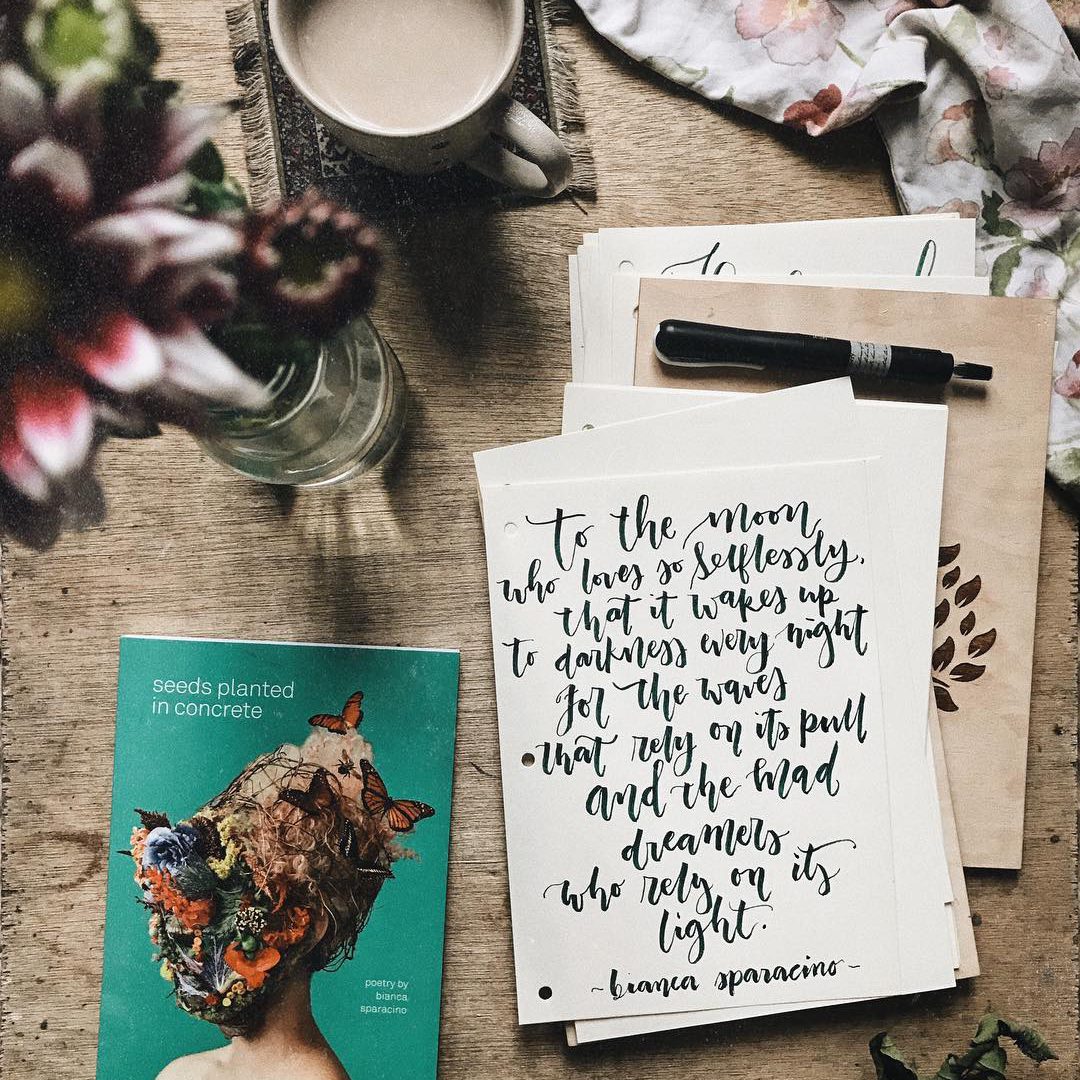 to the moon
who loves so selflessly,
that it wakes up
to darkness every night
for the waves
that rely on its pull
and the mad
dreamers
who rely on its
light.
~ bianca sparacino ~
seeds planted
in concrete
poetry by
bianca
sparacino